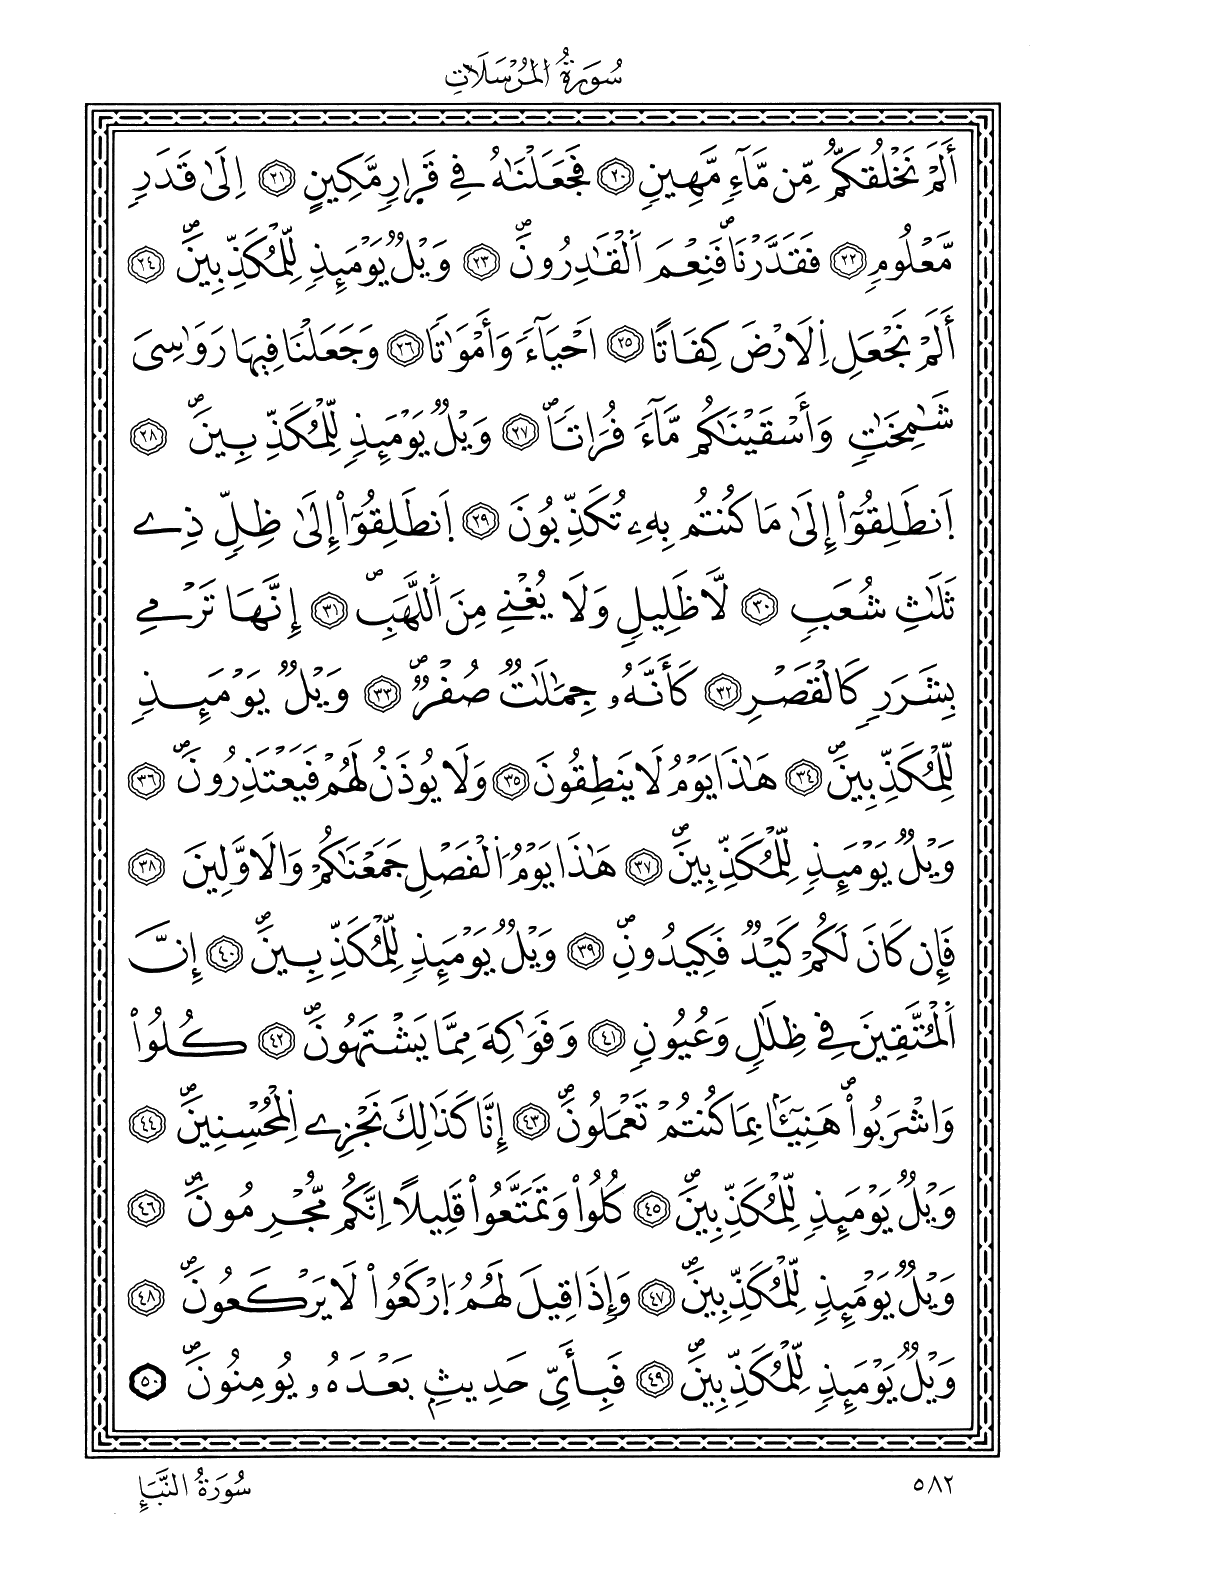 سُورَةُ الْمُرْسَلَاتِ
أَلَمْ نَخْلُقكُّم مِّن مَّآءٖ مَّهِينٖ ٢٠ فَجَعَلْنَٰهُ فِے قَرَارٖ مَّكِينٍ ٢١ اِلَىٰ قَدَرٖ
مَّعْلُومٖ ٢٢ فَقَدَّرْنَاۖ فَنِعْمَ اَ۬لْقَٰدِرُونَۖ ٢٣ وَيْلٞ يَوْمَئِذٖ لِّلْمُكَذِّبِينَۖ ٢٤
أَلَمْ نَجْعَلِ اِ۬لَارْضَ كِفَاتاً ٢٥ اَحْيَآءٗ وَأَمْوَٰتاٗ ٢٦ وَجَعَلْنَا فِيهَا رَوَٰسِىَ
شَٰمِخَٰتٖ وَأَسْقَيْنَٰكُم مَّآءٗ فُرَاتاٗۖ ٢٧ وَيْلٞ يَوْمَئِذٖ لِّلْمُكَذِّبِينَۖ ٢٨
اَ۪نطَلِقُوٓاْ إِلَىٰ مَا كُنتُم بِهِۦ تُكَذِّبُونَ ٢٩ اَ۪نطَلِقُوٓاْ إِلَىٰ ظِلّٖ ذِے
ثَلَٰثِ شُعَبٖ ٣٠ لَّا ظَلِيلٖ وَلَا يُغْنِے مِنَ اَ۬للَّهَبِۖ ٣١ إِنَّهَا تَرْمِے
بِشَرَرٖ كَالْقَصْرِ ٣٢ كَأَنَّهُۥ جِمَٰلَٰتٞ صُفْرٞۖ ٣٣ وَيْلٞ يَوْمَئِذٖ
لِّلْمُكَذِّبِينَۖ ٣٤ هَٰذَا يَوْمُ لَا يَنطِقُونَ ٣٥ وَلَا يُوذَنُ لَهُمْ فَيَعْتَذِرُونَۖ ٣٦
وَيْلٞ يَوْمَئِذٖ لِّلْمُكَذِّبِينَۖ ٣٧ هَٰذَا يَوْمُ اُ۬لْفَصْلِ جَمَعْنَٰكُمْ وَالَاوَّلِينَ ٣٨
فَإِن كَانَ لَكُمْ كَيْدٞ فَكِيدُونِۖ ٣٩ وَيْلٞ يَوْمَئِذٖ لِّلْمُكَذِّبِينَۖ ٤٠ إِنَّ
اَ۬لْمُتَّقِينَ فِے ظِلَٰلٖ وَعُيُونٖ ٤١ وَفَوَٰكِهَ مِمَّا يَشْتَهُونَۖ ٤٢ كُلُواْ
وَاشْرَبُواْ هَنِيٓـَٔاَۢ بِمَا كُنتُمْ تَعْمَلُونَۖ ٤٣ إِنَّا كَذَٰلِكَ نَجْزِے اِ۬لْمُحْسِنِينَۖ ٤٤
وَيْلٞ يَوْمَئِذٖ لِّلْمُكَذِّبِينَۖ ٤٥ كُلُواْ وَتَمَتَّعُواْ قَلِيلًا اِنَّكُم مُّجْرِمُونَۖ ٤٦
وَيْلٞ يَوْمَئِذٖ لِّلْمُكَذِّبِينَۖ ٤٧ وَإِذَا قِيلَ لَهُمُ اُ۪رْكَعُواْ لَا يَرْكَعُونَۖ ٤٨
وَيْلٞ يَوْمَئِذٖ لِّلْمُكَذِّبِينَۖ ٤٩ فَبِأَىِّ حَدِيثِۢ بَعْدَهُۥ يُومِنُونَۖ ٥٠
٥٨٢ سُورَةُ النَّبَإِ